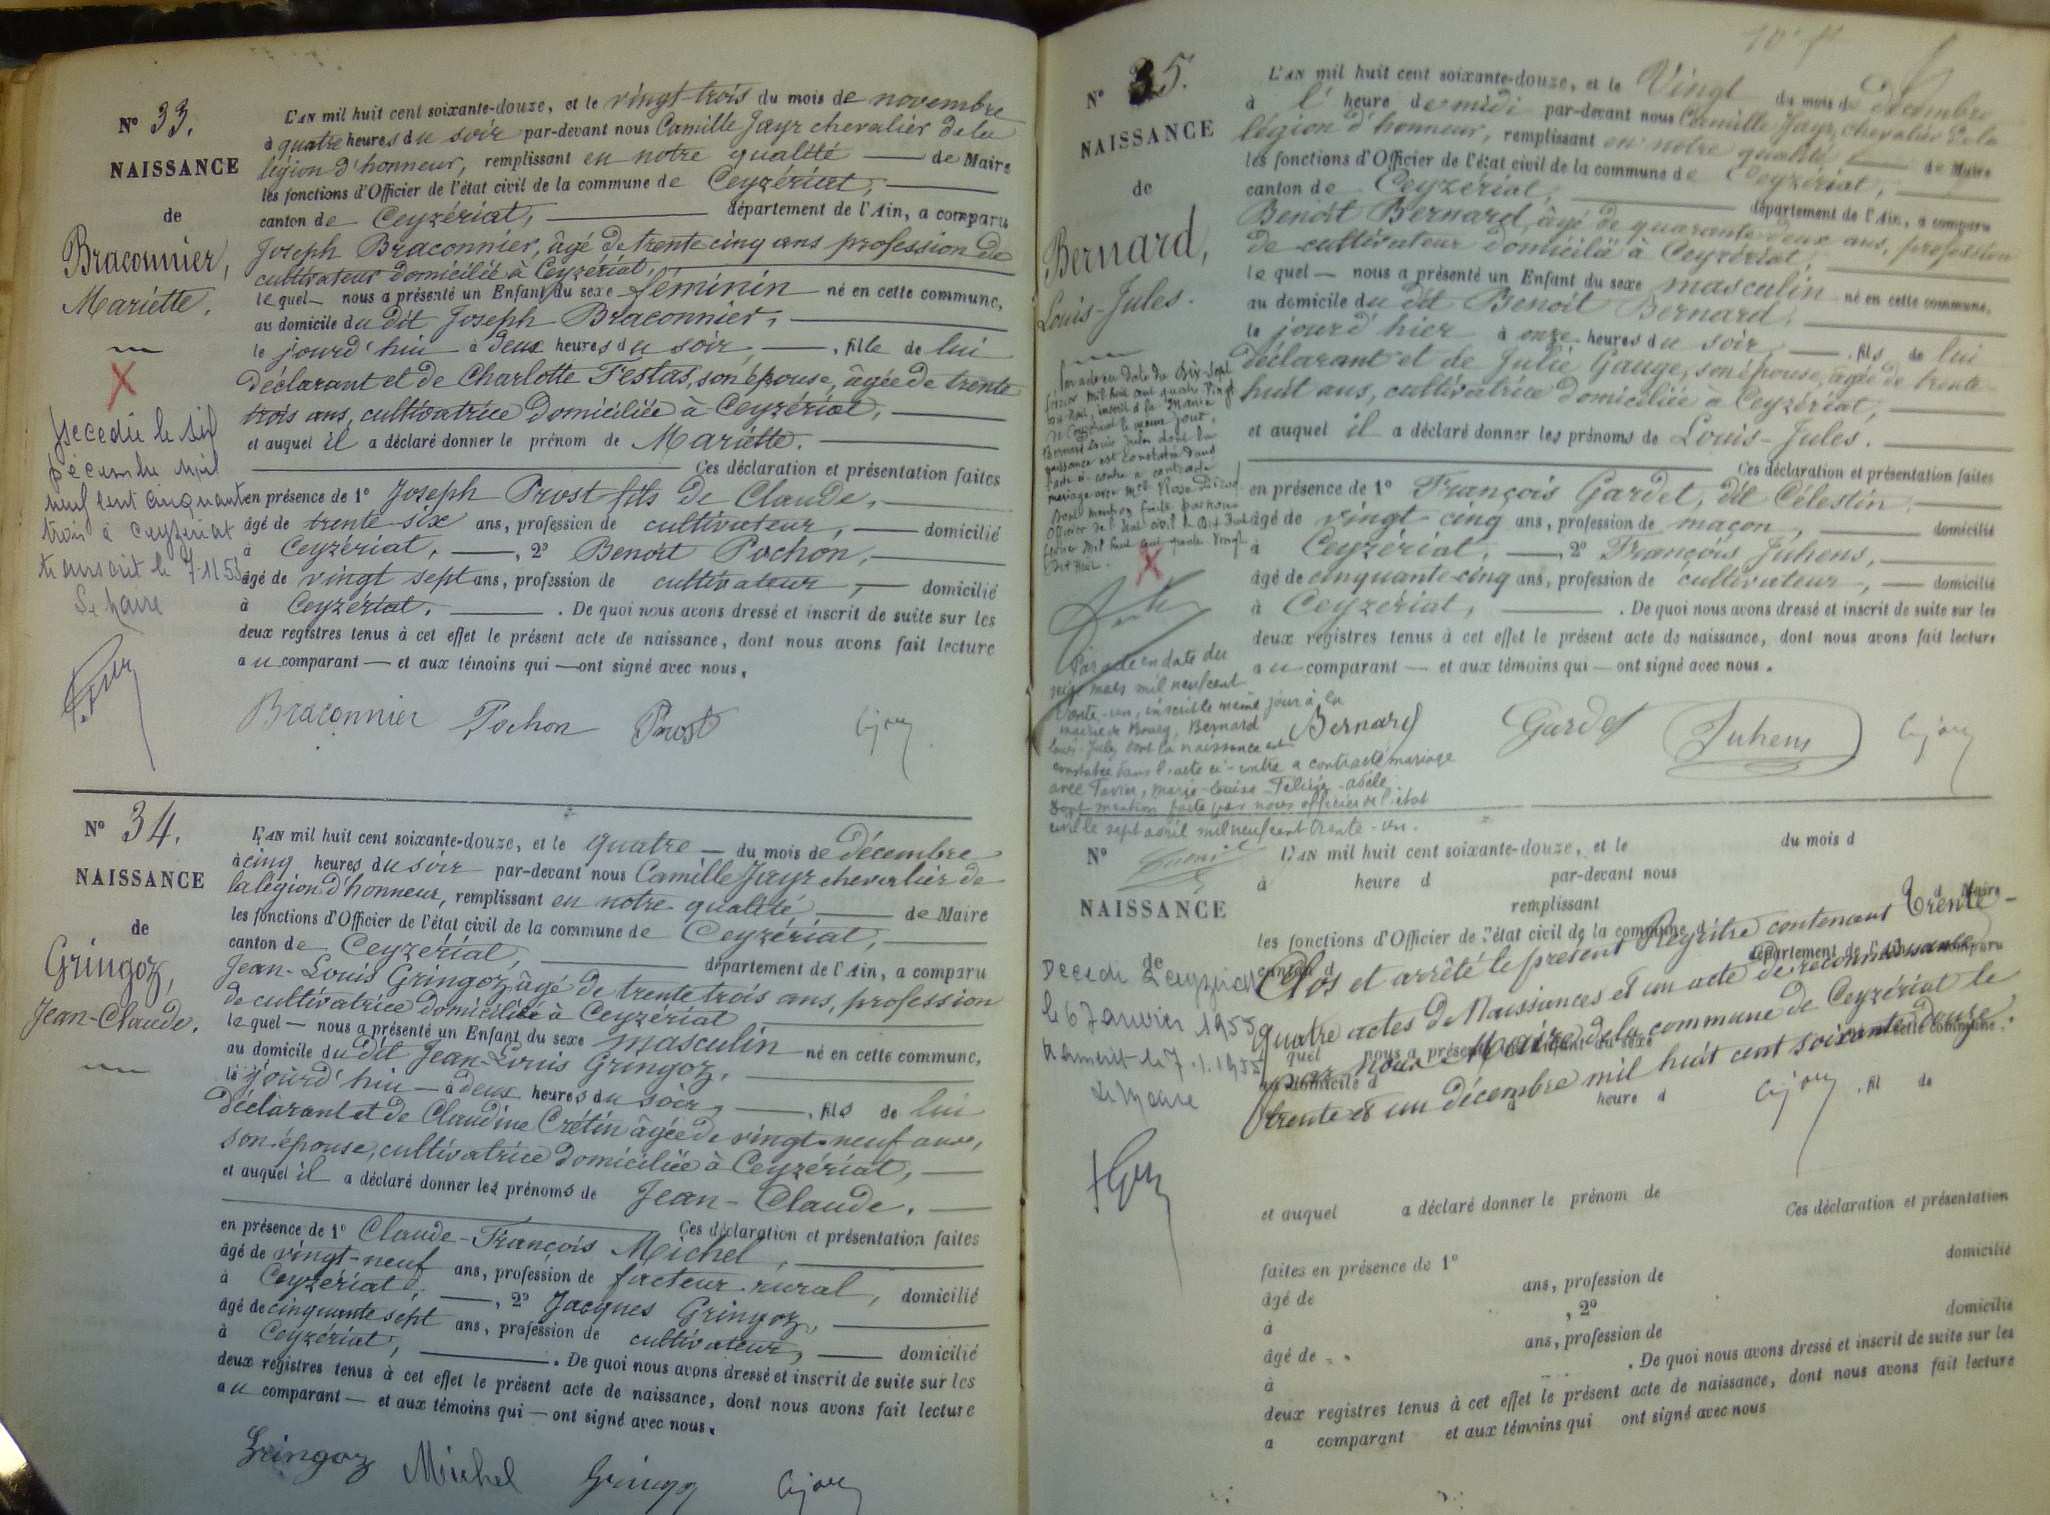 N° 33.
NAISSANCE
de
Braconnier,
Mariette.
L'AN mil huit cent soixante-douze, et le vingt-trois du mois de novembre
à quatre heures du soir par-devant nous Camille Jayr chevalier de la
légion d'honneur, remplissant en notre qualité de Maire
les fonctions d'Officier de l'état civil de la commune de Ceyzériat,
canton de Ceyzériat, département de l'Ain, a comparu
Joseph Braconnier, âgé de trente cinq ans profession de
cultivateur domicilié à Ceyzériat,
lequel nous a présenté un Enfant du sexe féminin né en cette commune,
au domicile du dit Joseph Braconnier,
le jourd'hui à deux heures du soir, fille de lui
déclarant et de Charlotte Festas, son épouse, âgée de trente
trois ans, cultivatrice domiciliée à Ceyzériat,
et auquel il a déclaré donner le prénom de Mariette.
Ces déclaration et présentation faites
en présence de 1° Joseph Prost fils de Claude,
âgé de trente-six ans, profession de cultivateur, domicilié
à Ceyzériat, 2° Benoit Pochon,
âgé de vingt sept ans, profession de cultivateur, domicilié
à Ceyzériat. De quoi nous avons dressé et inscrit de suite sur les
deux registres tenus à cet effet le présent acte de naissance, dont nous avons fait lecture
au comparant et aux témoins qui ont signé avec nous.
Braconnier Pochon Prost Cjayr
X
décembre mil
neuf cent cinquante
trois à Ceyzériat
Le Maire
N° 34.
NAISSANCE
de
Gringoz,
Jean-Claude.
L'AN mil huit cent soixante-douze, et le quatre du mois de décembre
à cinq heures du soir par-devant nous Camille Jayr chevalier de
la légion d'honneur, remplissant en notre qualité, de Maire
les fonctions d'Officier de l'état civil de la commune de Ceyzériat,
canton de Ceyzériat, département de l'Ain, a comparu
Jean-Louis Gringoz, âgé de trente trois ans, profession
de cultivatrice domicilié à Ceyzériat
lequel nous a présenté un Enfant du sexe masculin né en cette commune,
au domicile du dit Jean-Louis Gringoz,
le jourd'hui à deux heures du soir, fils de lui
déclarant et de Claudine Crétin âgée de vingt-neuf ans,
son épouse, cultivatrice domiciliée à Ceyzériat,
et auquel il a déclaré donner les prénoms de Jean-Claude.
Ces déclaration et présentation faites
en présence de 1° Claude-François Michel,
âgé de vingt-neuf ans, profession de facteur rural, domicilié
à Ceyzériat, 2° Jacques Gringoz,
âgé de cinquante sept ans, profession de cultivateur, domicilié
à Ceyzériat, De quoi nous avons dressé et inscrit de suite sur les
deux registres tenus à cet effet le présent acte de naissance, dont nous avons fait lecture
au comparant et aux témoins qui ont signé avec nous.
Gringoz Michel Gringoz Cjayr
N° 35.
NAISSANCE
de
Bernard,
Louis-Jules.
L'AN mil huit cent soixante-douze, et le Vingt du mois de décembre
à l'heure de midi par-devant nous Camille Jayr, chevalier de la
légion d'honneur, remplissant en notre qualité de Maire
les fonctions d'Officier de l'état civil de la commune de Ceyzériat,
canton de Ceyzériat, département de l'Ain, a comparu
Benoit Bernard, âgé de quarante deux ans, profession
de cultivateur domicilié à Ceyzériat,
lequel nous a présenté un Enfant du sexe masculin né en cette commune,
au domicile du dit Benoit Bernard,
le jourd'hier à onze heures du soir, fils de lui
déclarant et de Julie Gauge, son épouse, âgée de trente
huit ans, cultivatrice domiciliée à Ceyzériat,
et auquel il a déclaré donner les prénoms de Louis-Jules.
Ces déclaration et présentation faites
en présence de 1° François Gardet, dit Célestin,
âgé de vingt cinq ans, profession de maçon, domicilié
à Ceyzériat, 2° François Juhens,
âgé de cinquante-cinq ans, profession de cultivateur, domicilié
à Ceyzériat, De quoi nous avons dressé et inscrit de suite sur les
deux registres tenus à cet effet le présent acte de naissance, dont nous avons fait lecture
au comparant et aux témoins qui ont signé avec nous.
Bernard Gardet Juhens Cjayr
Par acte en date du dix-sept
février mil huit cent quatre vingt
dix huit, inscrit à la Mairie
de Ceyzériat le même jour,
Bernard Louis Jules dont la
naissance est constatée dans
l'acte ci-contre a contracté
mariage avec
Dont mention faite par nous
Officier de l'état civil le dix huit
février mil huit cent quatre vingt
dix huit.
X
Par acte en date du
seize mars mil neuf cent
trente-un, inscrit le même jour à la
mairie de Bourg, Bernard
Louis-Jules dont la naissance est
constatée dans l'acte ci-contre a contracté mariage
avec Tavier, Marie-Louise-Adèle
Dont mention faite par nous officier de l'état
civil le sept avril mil neuf cent trente-un.
N°
NAISSANCE
de
L'AN mil huit cent soixante-douze, et le du mois d
à heure d par-devant nous
remplissant d Maire
les fonctions d'Officier de l'état civil de la commune d
canton d département de l'Ain, a comparu
quel nous a présenté un Enfant du sexe né en cette commune,
au domicile d
heure d . fil de
Clos et arrêté le présent Registre contenant Trente-
quatre actes de Naissances et un acte de reconnaissance
par nous Maire de la commune de Ceyzériat le
trente et un décembre mil huit cent soixante-douze.
Cjayr
Décédé Ceyzériat
le 6 Janvier 1955
le 7.1.1955
Le Maire
et auquel a déclaré donner le prénom de
Ces déclaration et présentation
faites en présence de 1°
âgé de ans, profession de domicilié
à , 2°
âgé de ans, profession de domicilié
à . De quoi nous avons dressé et inscrit de suite sur les
deux registres tenus à cet effet le présent acte de naissance, dont nous avons fait lecture
a comparant et aux témoins qui ont signé avec nous